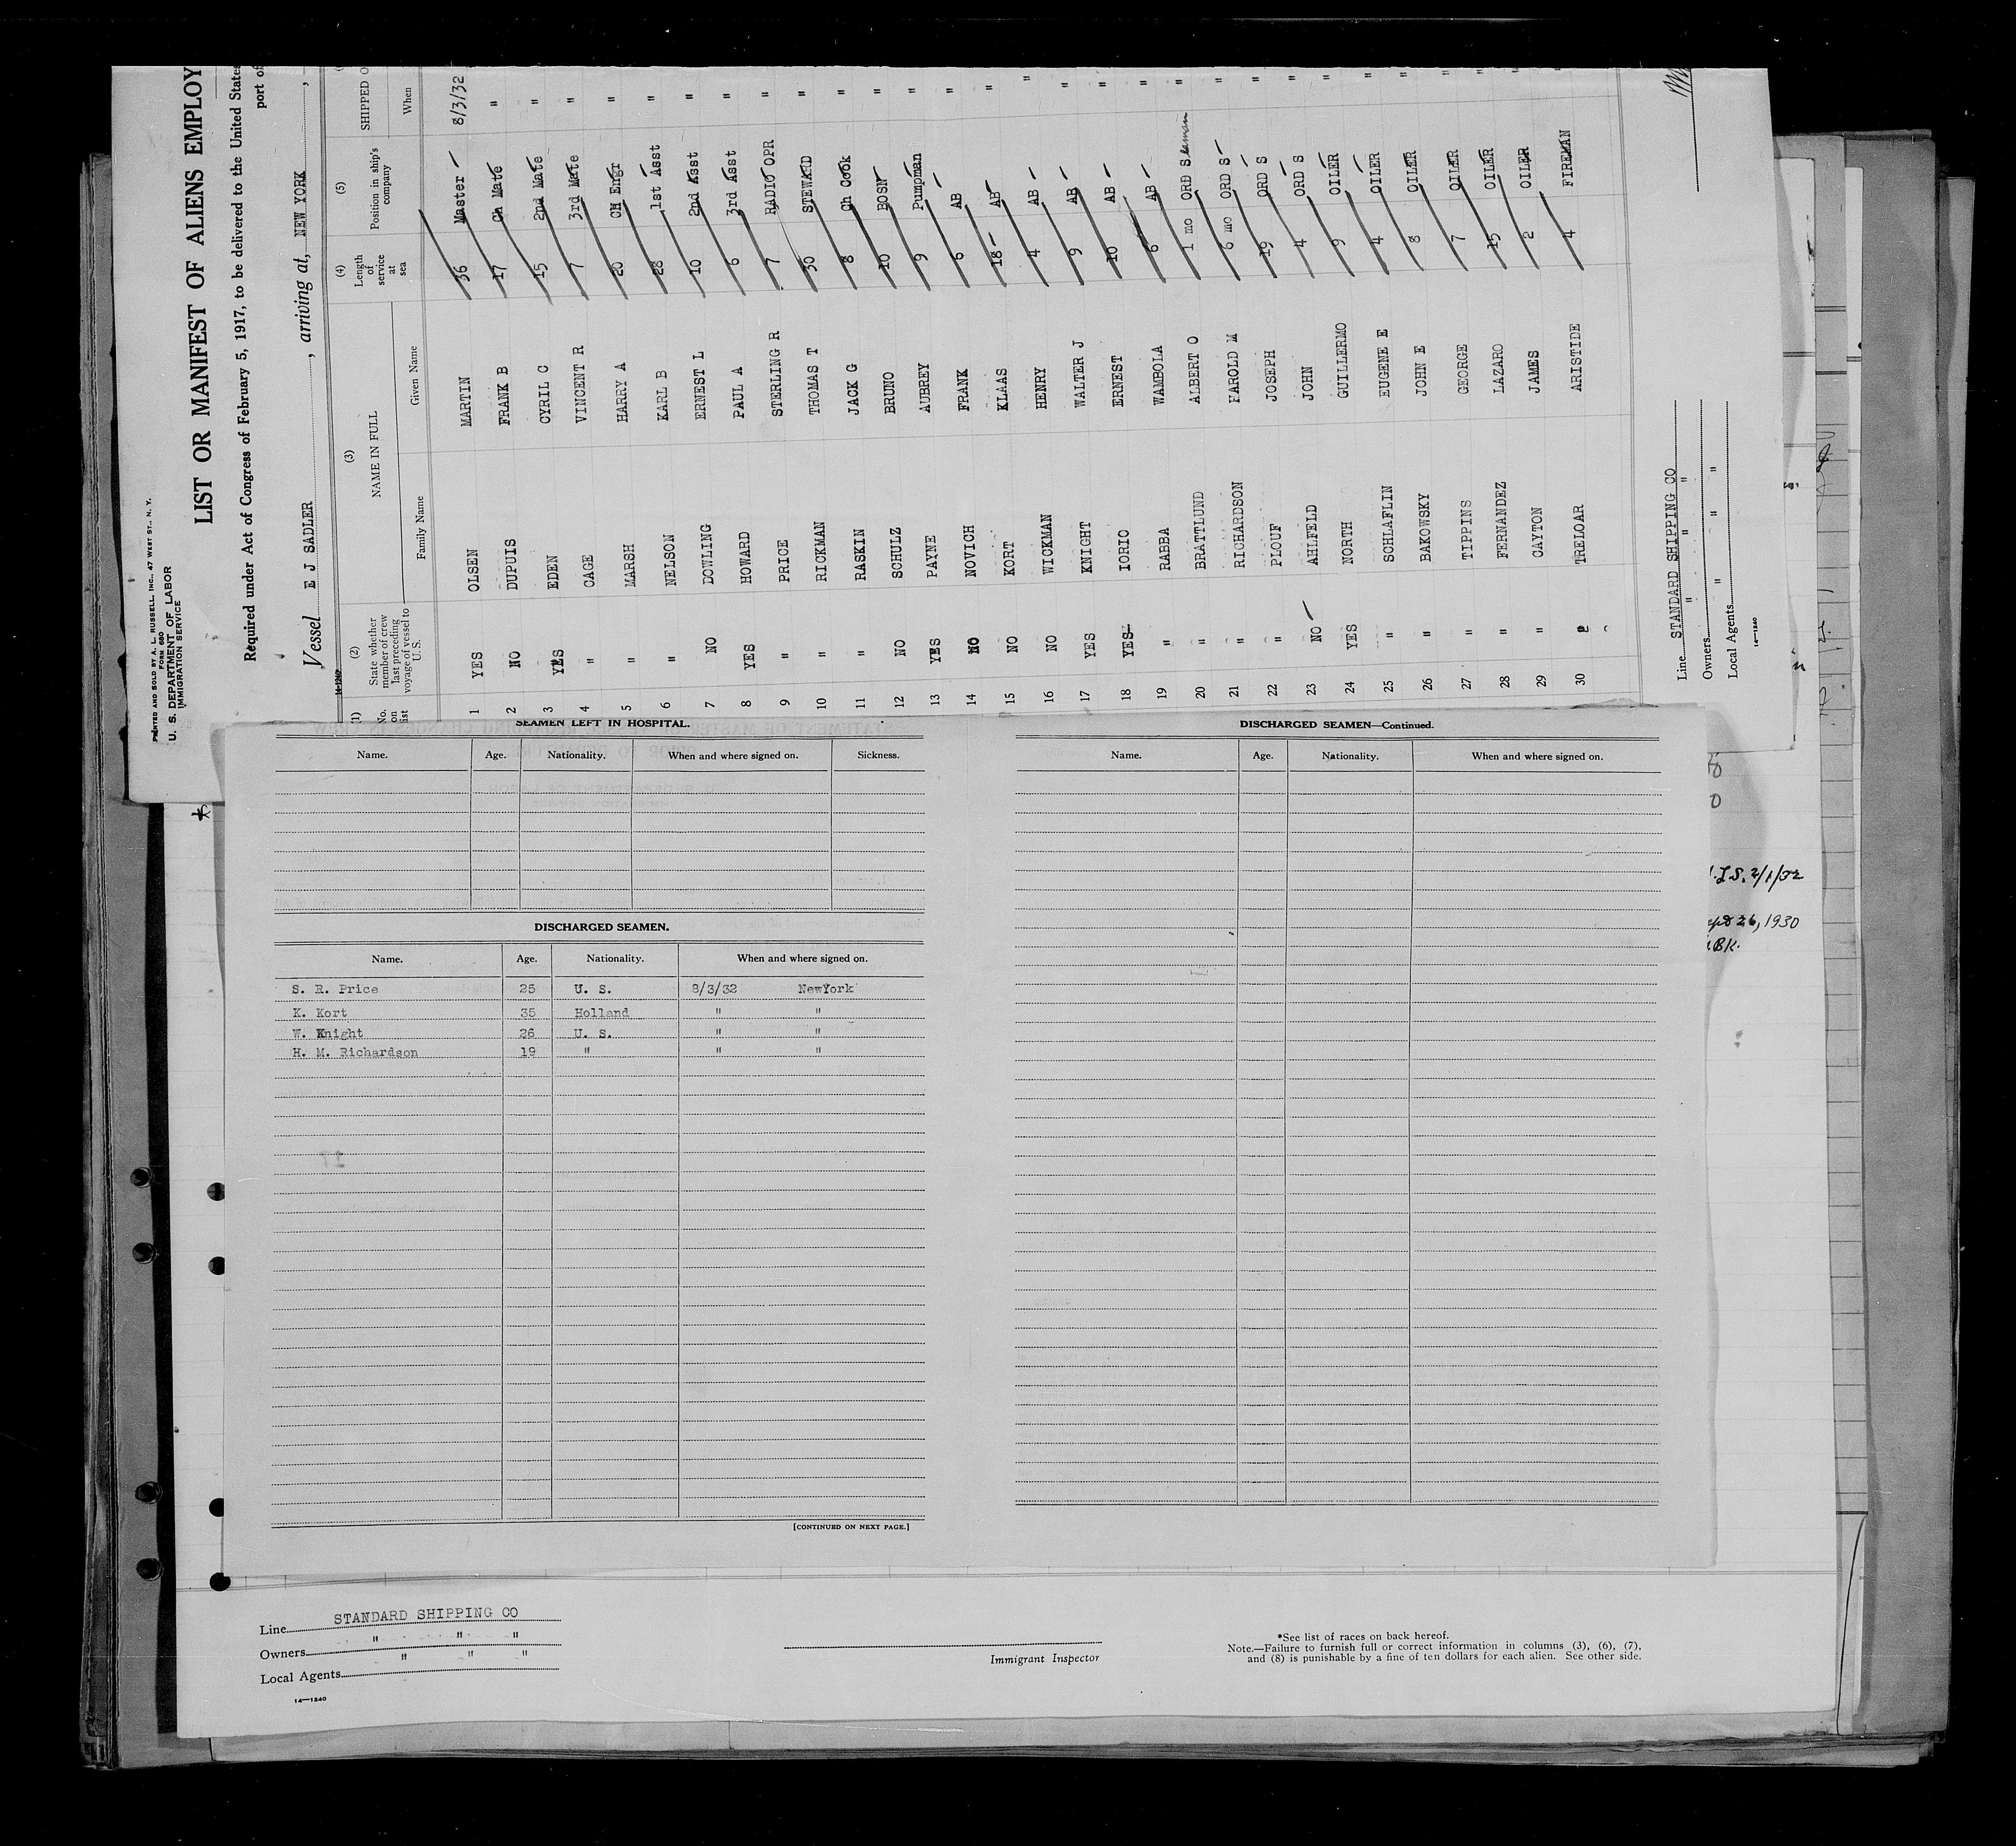 PRINTED AND SOLD BY A. L. RUSSELL, INC., 47 WEST ST., N. Y.
FORM 680
U. S. DEPARTMENT OF LABOR
IMMIGRATION SERVICE
LIST OR MANIFEST OF ALIENS EMPLOY
Required under Act of Congress of February 5, 1917, to be delivered to the United States
port of
Vessel E J SADLER, arriving at, NEW YORK,
14-1240
(1) (2) (3) (4) (5)
No. on list State whether member of crew last preceding voyage of vessel to U. S. NAME IN FULL Family Name Given Name Length of service at sea Position in ship's company SHIPPED O When
1 YES OLSEN MARTIN 36 Master 8/3/32
2 NO DUPUIS FRANK B 17 Ch Mate "
3 YES EDEN CYRIL C 15 2nd Mate "
4 " CAGE VINCENT R 7 3rd Mate "
5 " MARSH HARRY A 20 CH Engr "
6 " NELSON KARL B 28 1st Asst "
7 NO DOWLING ERNEST L 10 2nd Asst "
8 YES HOWARD PAUL A 6 3rd Asst "
9 " PRICE STERLING R 7 RADIO OPR "
10 " RICKMAN THOMAS T 30 STEWARD "
11 " RASKIN JACK G 8 Ch Cook "
12 NO SCHULZ BRUNO 10 BOSN "
13 YES PAYNE AUBREY 9 Pumpman "
14 NO NOVICH FRANK 6 AB "
15 NO KORT KLAAS 18 AB "
16 NO WICKMAN HENRY 4 AB "
17 YES KNIGHT WALTER J 9 AB "
18 YES IORIO ERNEST 10 AB "
19 " RABBA WAMBOLA 6 AB "
20 " BRATTLUND ALBERT O 1 mo ORD Seaman "
21 " RICHARDSON HAROLD M 6 mo ORD S "
22 " PLOUF JOSEPH 19 ORD S "
23 NO AHLFELD JOHN 4 ORD S "
24 YES NORTH GUILLERMO 9 OILER "
25 " SCHLAFLIN EUGENE E 4 OILER "
26 " BAKOWSKY JOHN E 8 OILER "
27 " TIPPINS GEORGE 7 OILER "
28 " FERNANDEZ LAZARO 15 OILER "
29 " CAYTON JAMES 2 OILER "
30 TRELOAR ARISTIDE 4 FIREMAN
Line STANDARD SHIPPING CO
Owners " " "
Local Agents " " "
14-1240
SEAMEN LEFT IN HOSPITAL.
Name. Age. Nationality. When and where signed on. Sickness.
DISCHARGED SEAMEN.
Name. Age. Nationality. When and where signed on.
S. R. Price 25 U. S. 8/3/32 NewYork
K. Kort 35 Holland " "
W. Knight 26 U. S. " "
H. M. Richardson 19 " " "
[CONTINUED ON NEXT PAGE.]
DISCHARGED SEAMEN—Continued.
Name. Age. Nationality. When and where signed on.
2/1/32
26, 1930
Line STANDARD SHIPPING CO
Owners " " "
Local Agents " " "
14-1240
Immigrant Inspector
*See list of races on back hereof.
Note.—Failure to furnish full or correct information in columns (3), (6), (7),
and (8) is punishable by a fine of ten dollars for each alien. See other side.